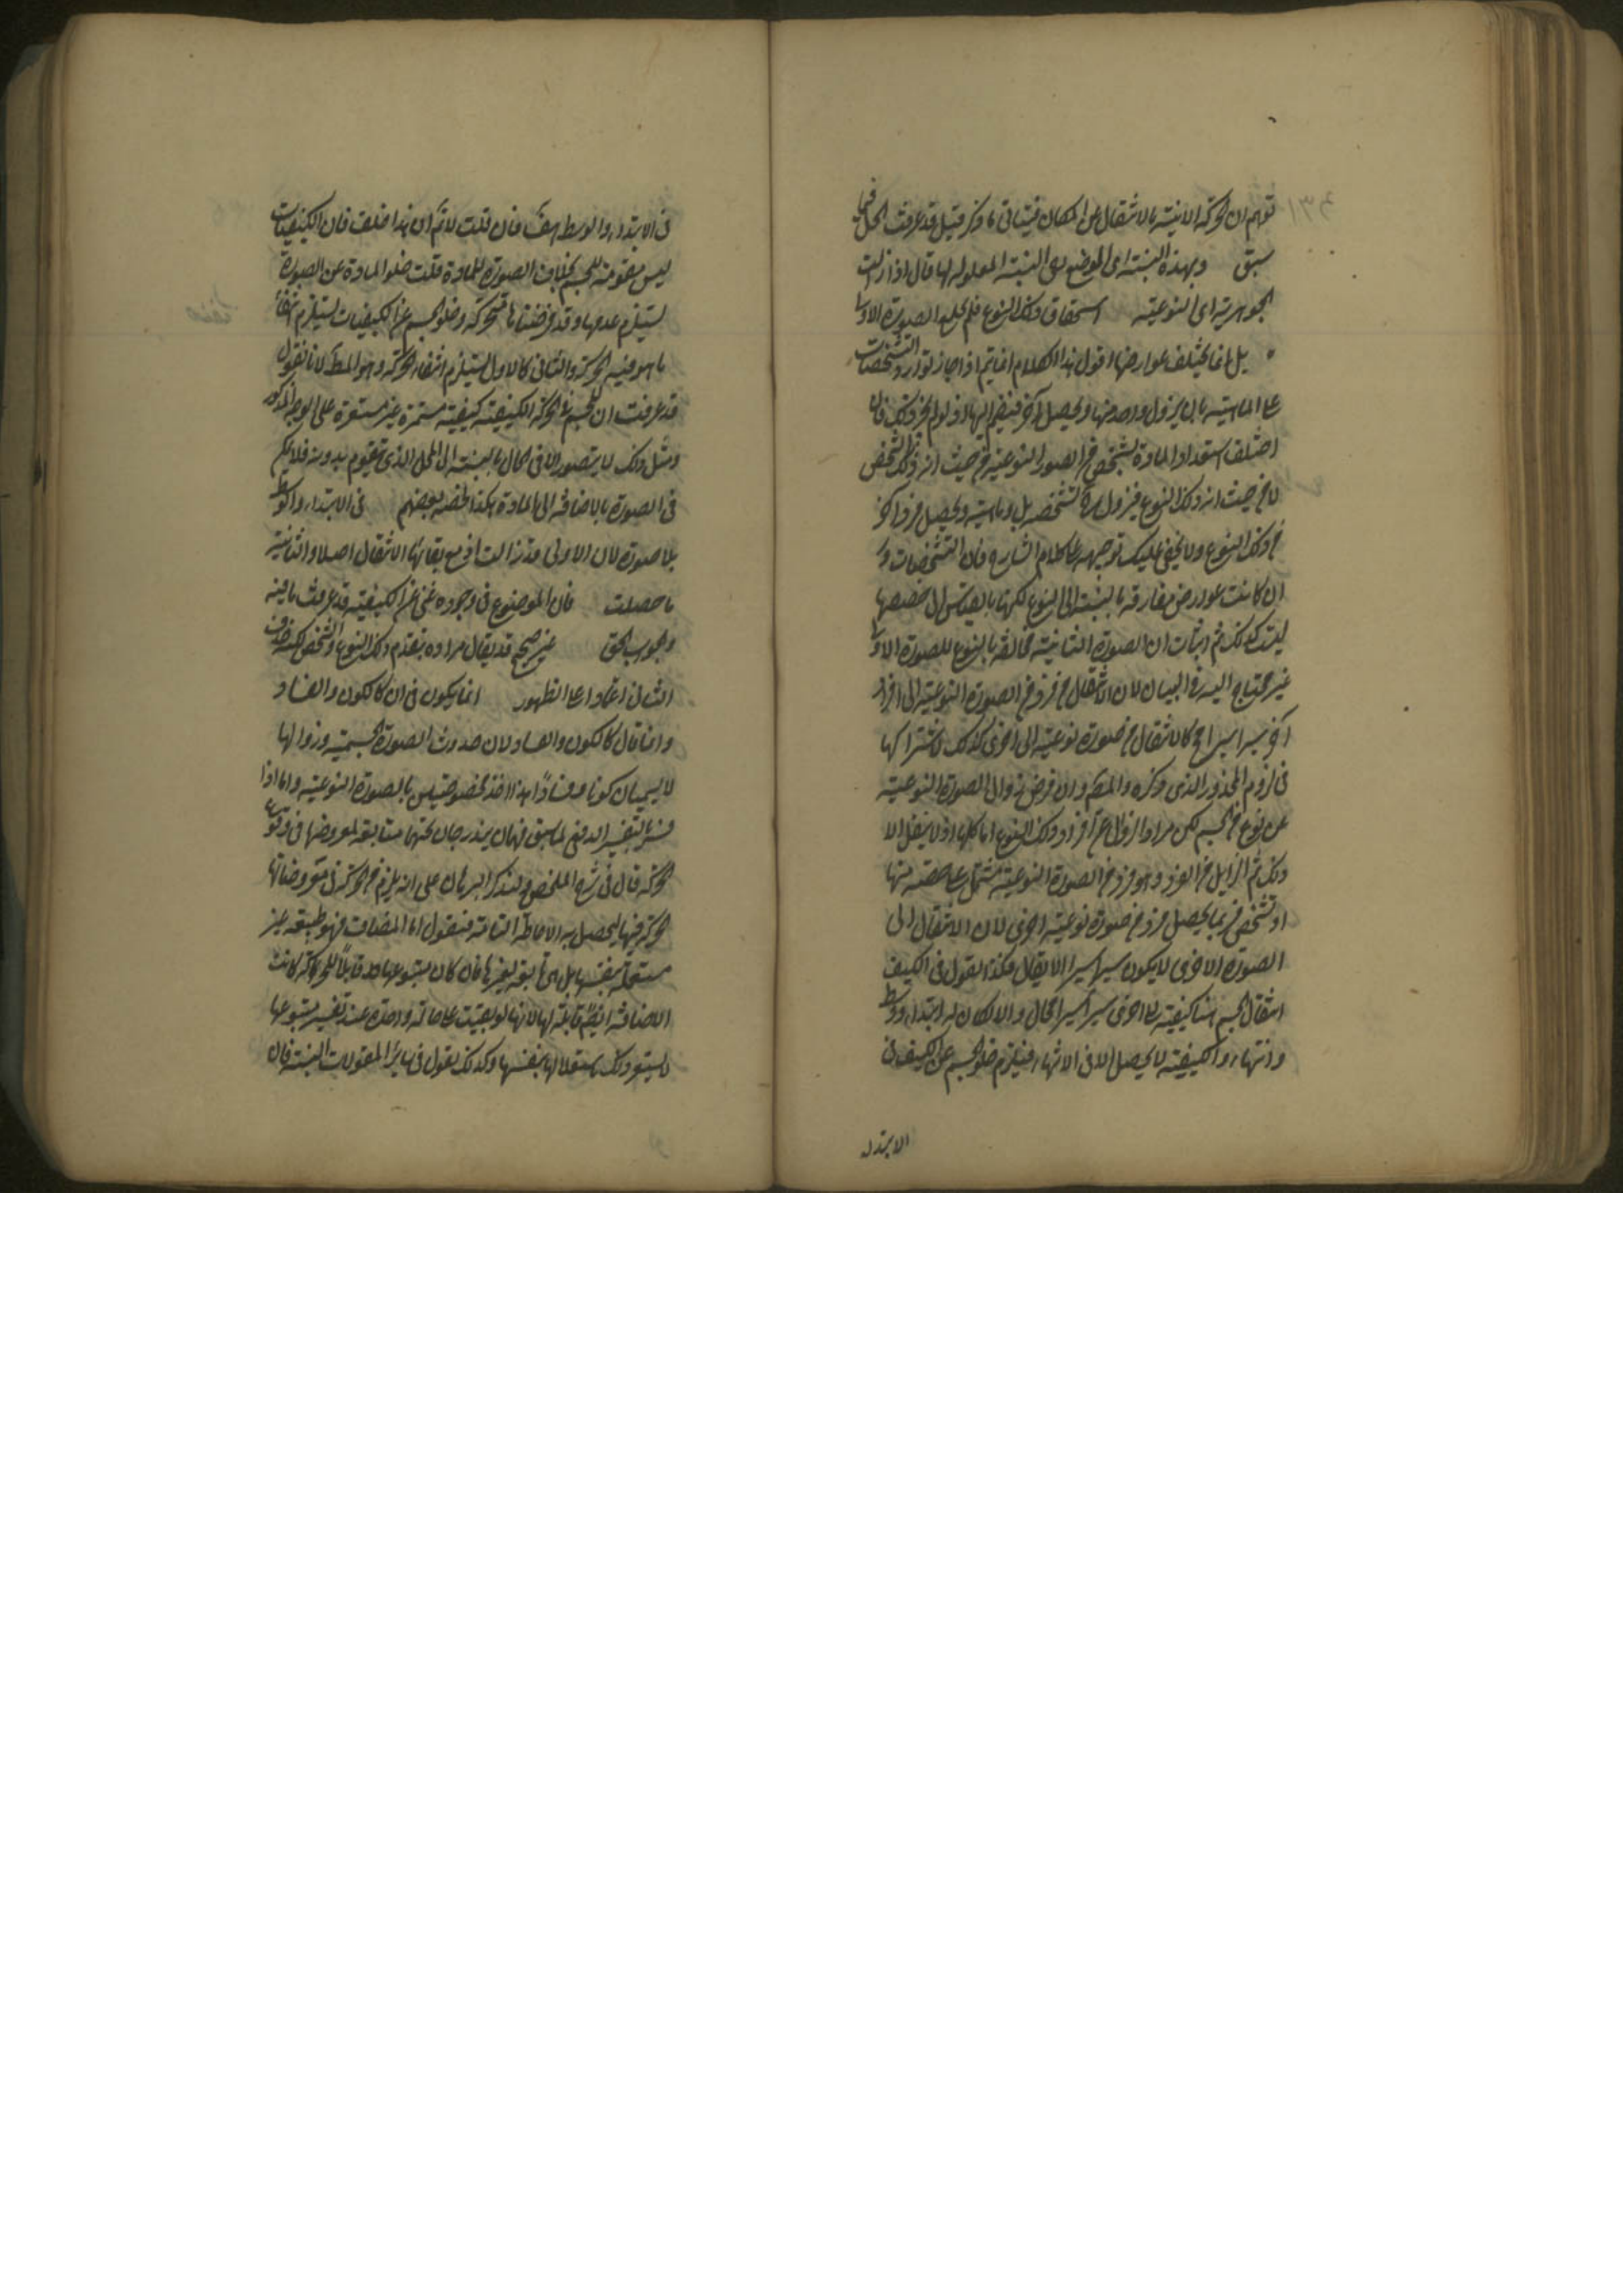 توهم ان الحركة الاينية بالانتقال عن المكان فيتأتى ما ذكر قيل قد عرفت الحال فيما
سبق وبهذه النسبة اى الموضع بل النسبة المعلولة لها قال اذا زالت
الجوهرية اى النوعية استحقاق ذلك النوع فلم يخلع الصورة الاولى
بل انما يختلف عوارضها اقول هذا الكلام انما يتم اذا جاز توارد التشخصات
على الماهية بان يزول واحد منها ويحصل آخر فينضم اليها اذ لو لم يجز ذلك فان
اختلف استعداد المادة لشخص من الصور النوعية من حيث انه ذلك الشخص
لا من حيث انه ذلك النوع فيزول تشخصه بل وماهيته ويحصل فرد آخر
من ذلك النوع ولا يخفى عليك توجيهه على كلام الشارح فان التشخصات و
ان كانت عوارض مفارقة بالنسبة الى النوع لكنها بالقياس الى حصصها
ليست كذلك ثم اثبات ان الصورة الثانية مخالفة بالنوع للصورة الاولى
غير محتاج اليه فى البيان لان الانتقال من فرد من الصورة النوعية الى افراد
اخر يسيرا يسيرا مح كالانتقال من صورة نوعية الى اخرى كذلك لاشتراكها
فى لزوم المحذور الذى ذكره والمصر وان فرض زوال الصورة النوعية
عن نوع من الجسم لكن مراده الزوال عن افراد ذلك النوع اما كلها اذ لا ينتقل الا
ذلك ثم الزايل من الفرد وهو فرد من الصورة النوعية مشتمل على حصة منها
او تشخص فربما يحصل فرد من صورة نوعية اخرى لان الانتقال الى
الصورة الاخرى لا يكون يسيرا يسيرا لا يقال هكذا القول فى الكيف
انتقال الجسم من كيفية الى اخرى يسيرا يسيرا محال والا لكان له ابتداء ووسط
وانتهاء والكيفية لا يحصل الا فى الانتهاء فيلزم خلو الجسم عن الكيف فى
الابتداء
فى الابتداء والوسط هف فان قلت لا نم ان هذا خلف فان الكيفيات
ليس مقومة للجسم بخلاف الصورة للمادة قلت خلو المادة عن الصورة
يستلزم عدمها وقد فرضناها متحركة وخلو الجسم عن الكيفيات يستلزم انتفاء
ما هو فيه الحركة والثانى كالاول يستلزم انتفاء الحركة وهو المط لانا نقول
قد عرفت ان للجسم فى الحركة الكيفية كيفية مستمرة غير مستقرة على الوجه المذكور
ومثل ذلك لا يتصور الا فى الحال بالنسبة الى المحل الذى يتقوم بدونه فلا يمكن
فى الصورة بالاضافة الى المادة هكذا لخصه بعضهم فى الابتداء والوسط
بلا صورة لان الاولى قد زالت اذ مع بقائها لا انتقال اصلا والثانية
ما حصلت فان الموضوع فى وجوده غنى عن الكيفية قد عرفت ما فيه
والجواب الحق غير صحيح قد يقال مراده بتقدم ذلك النوع والشخص لكنه حذف
الثانى اعتمادا على الظهور انما يكون فى ان كالكون والفساد
وانما قال كالكون والفساد لان حدوث الصورة الجسمية وزوالها
لا يسميان كونا وفسادا بهذا لاخذ خصوصيتين بالصورة النوعية واما اذا
فسرا بالتغير الدفعى لما سبق فهما يندرجان تحتهما متابعة لمعروضها فى وقوع
الحركة قال فى شرح الملخص ولنذكر البرهان على انه يلزم من الحركة فى معروضاتها
حركة فيها ليحصل به الاحاطة التامة فنقول اما المضاف فهو طبيعة غير
مستقلة بنفسها بل هى تابعة لغيرها فان كان متبوعها قابلا للحركة كانت
الاضافة ايضا قابلة لها لانها لو بقيت على حالة واحدة عند تغير متبوعها
لاستقر ذلك باستقلالها بنفسها وكذلك نقول فى سائر المقولات النسبية فان